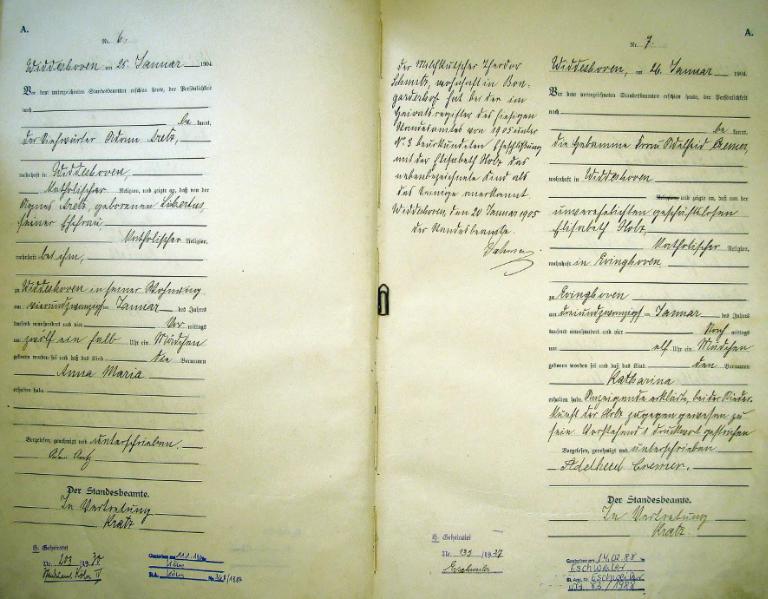 A.
Nr. 6.
Widdeshoven, am 25. Januar 1904.
Vor dem unterzeichneten Standesbeamten erschien heute, der Persönlichkeit
nach
be kannt,
der
wohnhaft in Widdeshoven,
katholischer Religion, und zeigte an, daß von der
Agnes geborenen
seiner Ehefrau
katholischer Religion,
wohnhaft bei ihm,
zu Widdeshoven in seiner Wohnung
am vierundzwanzigsten Januar des Jahres
tausend neunhundert und vier Vor mittags
um zwölf ein halb Uhr ein Mädchen
geboren worden sei und daß das Kind die Vornamen
Anna Maria
erhalten habe.
Vorgelesen, genehmigt und unterschrieben.
Der Standesbeamte.
In Vertretung
Kratz
Geheiratet
Nr. 203 /1930
der Milchkutscher Theodor
Schmitz, wohnhaft in Bon-
garderhof hat bei der im
Heiratsregister des hiesigen
Standesamtes von 1905 unter
Nr. 3 beurkundeten Eheschließung
mit der Elisabeth Holz das
nebenbezeichnete Kind als
das Seinige anerkannt.
Widdeshoven, den 20 Januar 1905
Der Standesbeamte.
Geheiratet
Nr. 139 /1937
Eschweiler
A.
Nr. 7.
Widdeshoven, am 26. Januar 1904.
Vor dem unterzeichneten Standesbeamten erschien heute, der Persönlichkeit
nach
be kannt,
die Hebamme Frau Adelheid Cremer,
wohnhaft in Widdeshoven
Religion, und zeigte an, daß von der
unverehelichten geschäftslosen
Elisabeth Holz,
katholischer Religion,
wohnhaft in Evinghoven
zu Evinghoven
am dreiundzwanzigsten Januar des Jahres
tausend neunhundert und vier Nach mittags
um elf Uhr ein Mädchen
geboren worden sei und daß das Kind den Vornamen
Katharina
erhalten habe. Anzeigende erklärte, bei der Nieder-
kunft der Holz zugegen gewesen zu
sein. Vorstehend 1 Druckwort gestrichen
Vorgelesen, genehmigt und unterschrieben
Adelheid Cremer.
Der Standesbeamte.
In Vertretung
Kratz.
Gestorben am 14.02.88
Eschweiler
Eschweiler